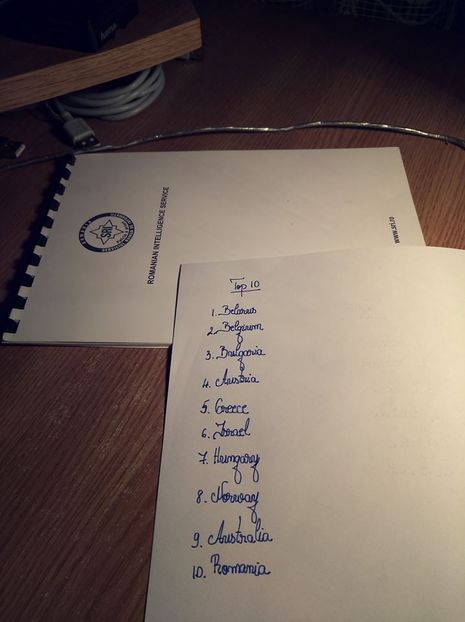 hama
SRI
ROMANIAN INTELLIGENCE SERVICE
www.sri.ro
Top 10
1. Belarus
2. Belgium
3. Bulgaria
4. Austria
5. Greece
6. Israel
7. Hungary
8. Norway
9. Australia
10. Romania